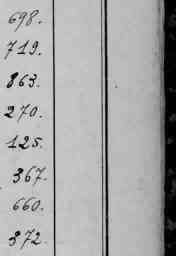 698.
719.
863.
270.
125.
367.
660.
372.